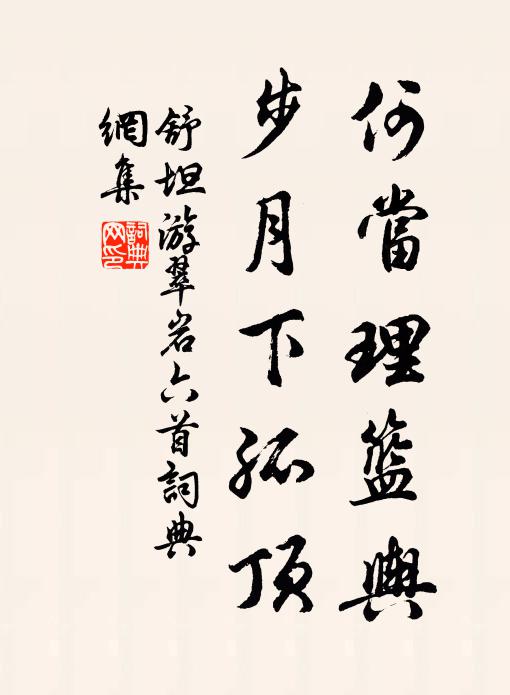 何當理籃輿
步月下孤頂
舒坦游翠岩六首詞典
網集
詞典
网印